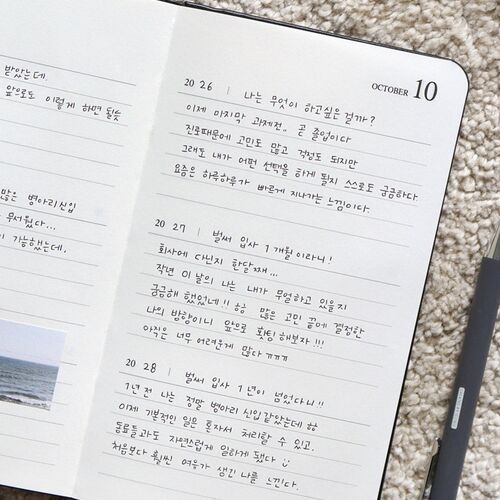 받았는데.
앞으로도 이렇게 하면 될듯
많은 병아리신입
무서웠다...
이 가능했는데.
OCTOBER 10
20 26 | 나는 무엇이 하고싶은 걸까?
이제 마지막 과제전.. 곧 졸업이다
진로때문에 고민도 많고 걱정도 되지만
그래도 내가 어떤 선택을 하게 될지 스스로도 궁금하다.
요즘은 하루하루가 빠르게 지나가는 느낌이다.
20 27 | 벌써 입사 1개월이라니!
회사에 다닌지 한달째...
작년 이날의 나는 내가 무얼하고 있을지
궁금해 했었네!! ㅎㅎ 많은 고민 끝에 결정한
나의 방향이니 앞으로 홧팅해보자!!!
아직은 너무 어려운게 많다 ㅠㅠㅠ
20 28 | 벌써 입사 1년이 넘었다니!!
1년전 나는 정말 병아리 신입같았는데 ㅎㅎ
이제 기본적인 일은 혼자서 처리할 수 있고.
동료들과도 자연스럽게 일하게 됐다 :)
처음보다 훨씬 여유가 생긴 나를 느낀다.